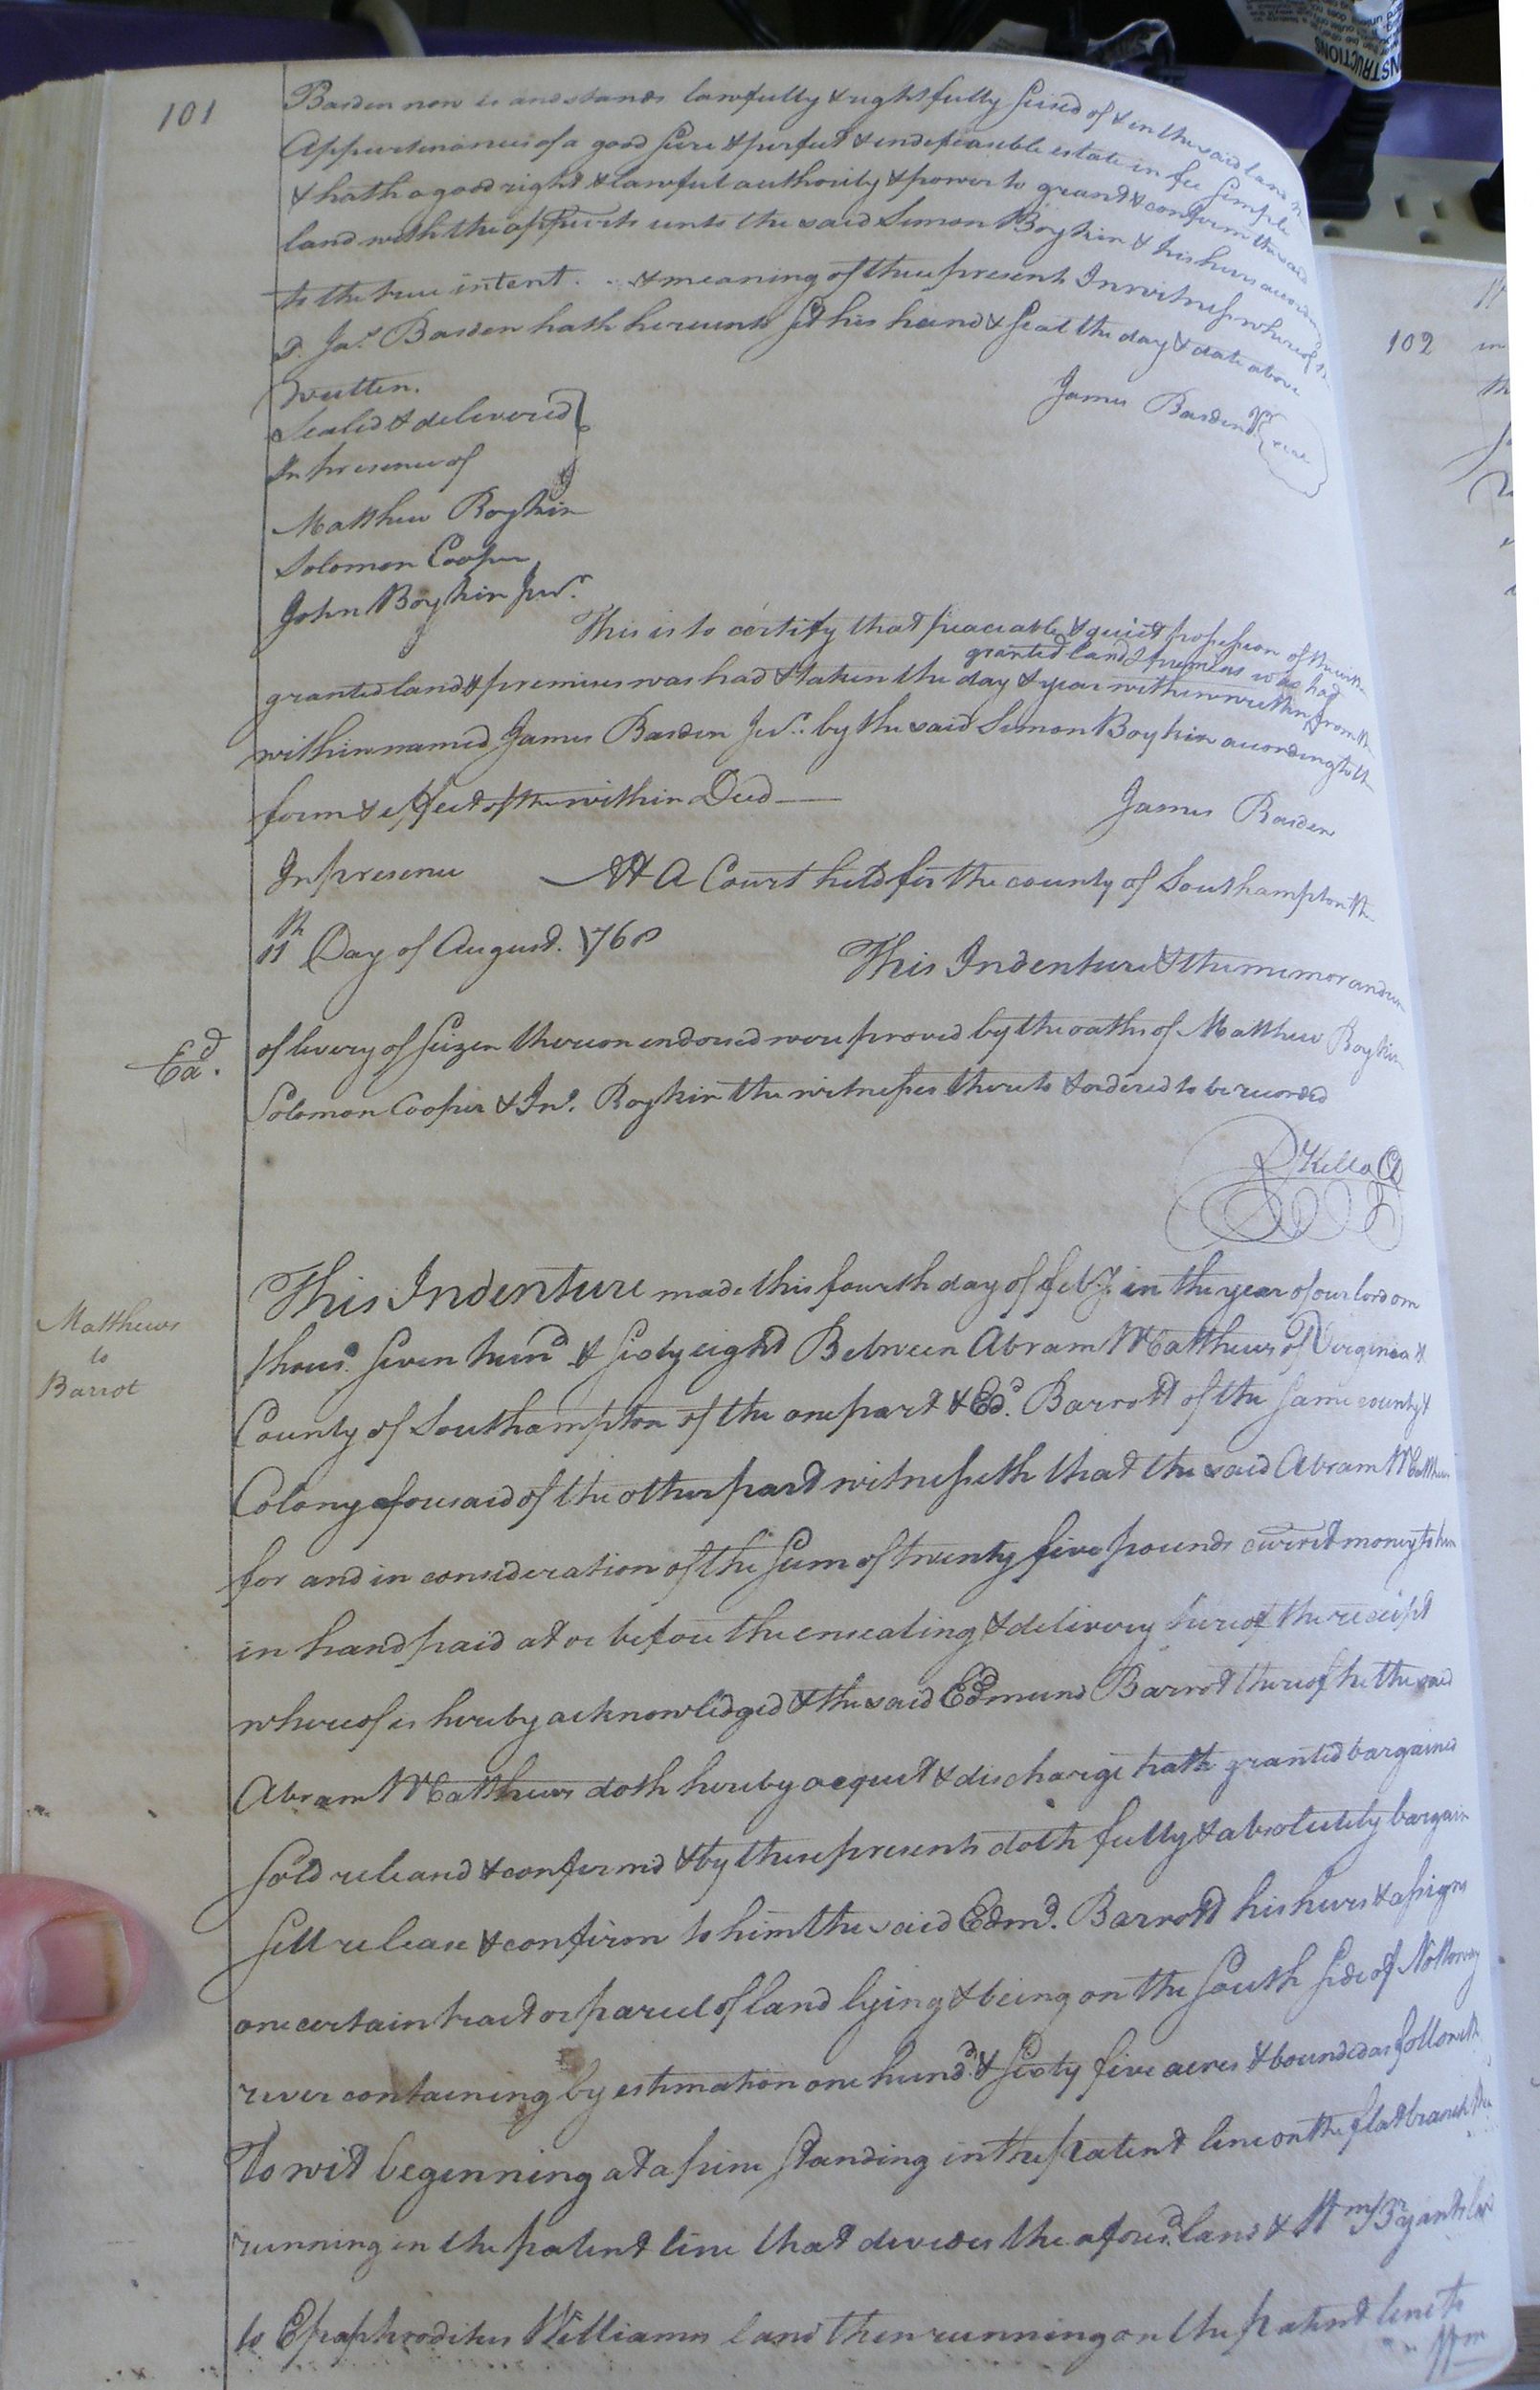 101
Barden now is and stands lawfully & rightfully seised of & in the said land &
Appurtenances of a good sure & perfect & indefeasible estate in fee simple
& hath a good right & lawful authority & power to grant & confirm the said
land with the appurts unto the said Simon Boykin & his heirs according
to the true intent . . & meaning of these presents In witness whereof the
sd. Jas. Barden hath hereunto set his hand & seal the day & date above
written. James Barden Seal
Sealed & delivered
In presence of
Matthew Boykin
Solomon Cooper
John Boykin Junr.
This is to certify that peaceable & quiet possession of the within
granted land & premises was had
granted land & premises was had & taken the day & year within written from the
within named James Barden Junr. by the said Simon Boykin according to the
form & effect of the within Deed —
James Barden
In presence At A Court held for the county of Southampton the
11th Day of August. 1768
This Indenture & the memorandum
of livery of seizen thereon endorsed were proved by the oaths of Matthew Boykin
Exd.
Solomon Cooper & Jno. Boykin the witnesses thereto & ordered to be recorded
R Kello Cl
Matthews
to
Barrot
This Indenture made this fourth day of feby. in the year of our lord one
thousd. seven hund & sixty eight Between Abram Matthews of Virginia &
County of Southampton of the one part & Edd. Barrott of the same county &
Colony aforesaid of the other part witnesseth that the said Abram Matthews
for and in consideration of the sum of twenty five pounds currt money to him
in hand paid at or before the ensealing & delivery hereof the receipt
whereof is hereby acknowledged & the said Edmund Barrot thereof he the said
Abram Matthews doth hereby acquit & discharge hath granted bargained
sold releasd & confirmd & by these presents doth fully & absolutely bargain
sell release & confirm to him the said Edmd. Barrott his heirs & assigns
one certain tract or parcel of land lying & being on the South side of Nottoway
river containing by estimation one hundd. & sixty five acres & bounded as followeth
To wit beginning at a pine standing in the patent line on the flat branch then
running in the patent line that devides the aforesd. land & Wm Bryants land
to Epaphroditus Williams land then running on the patent line to
Wm
102